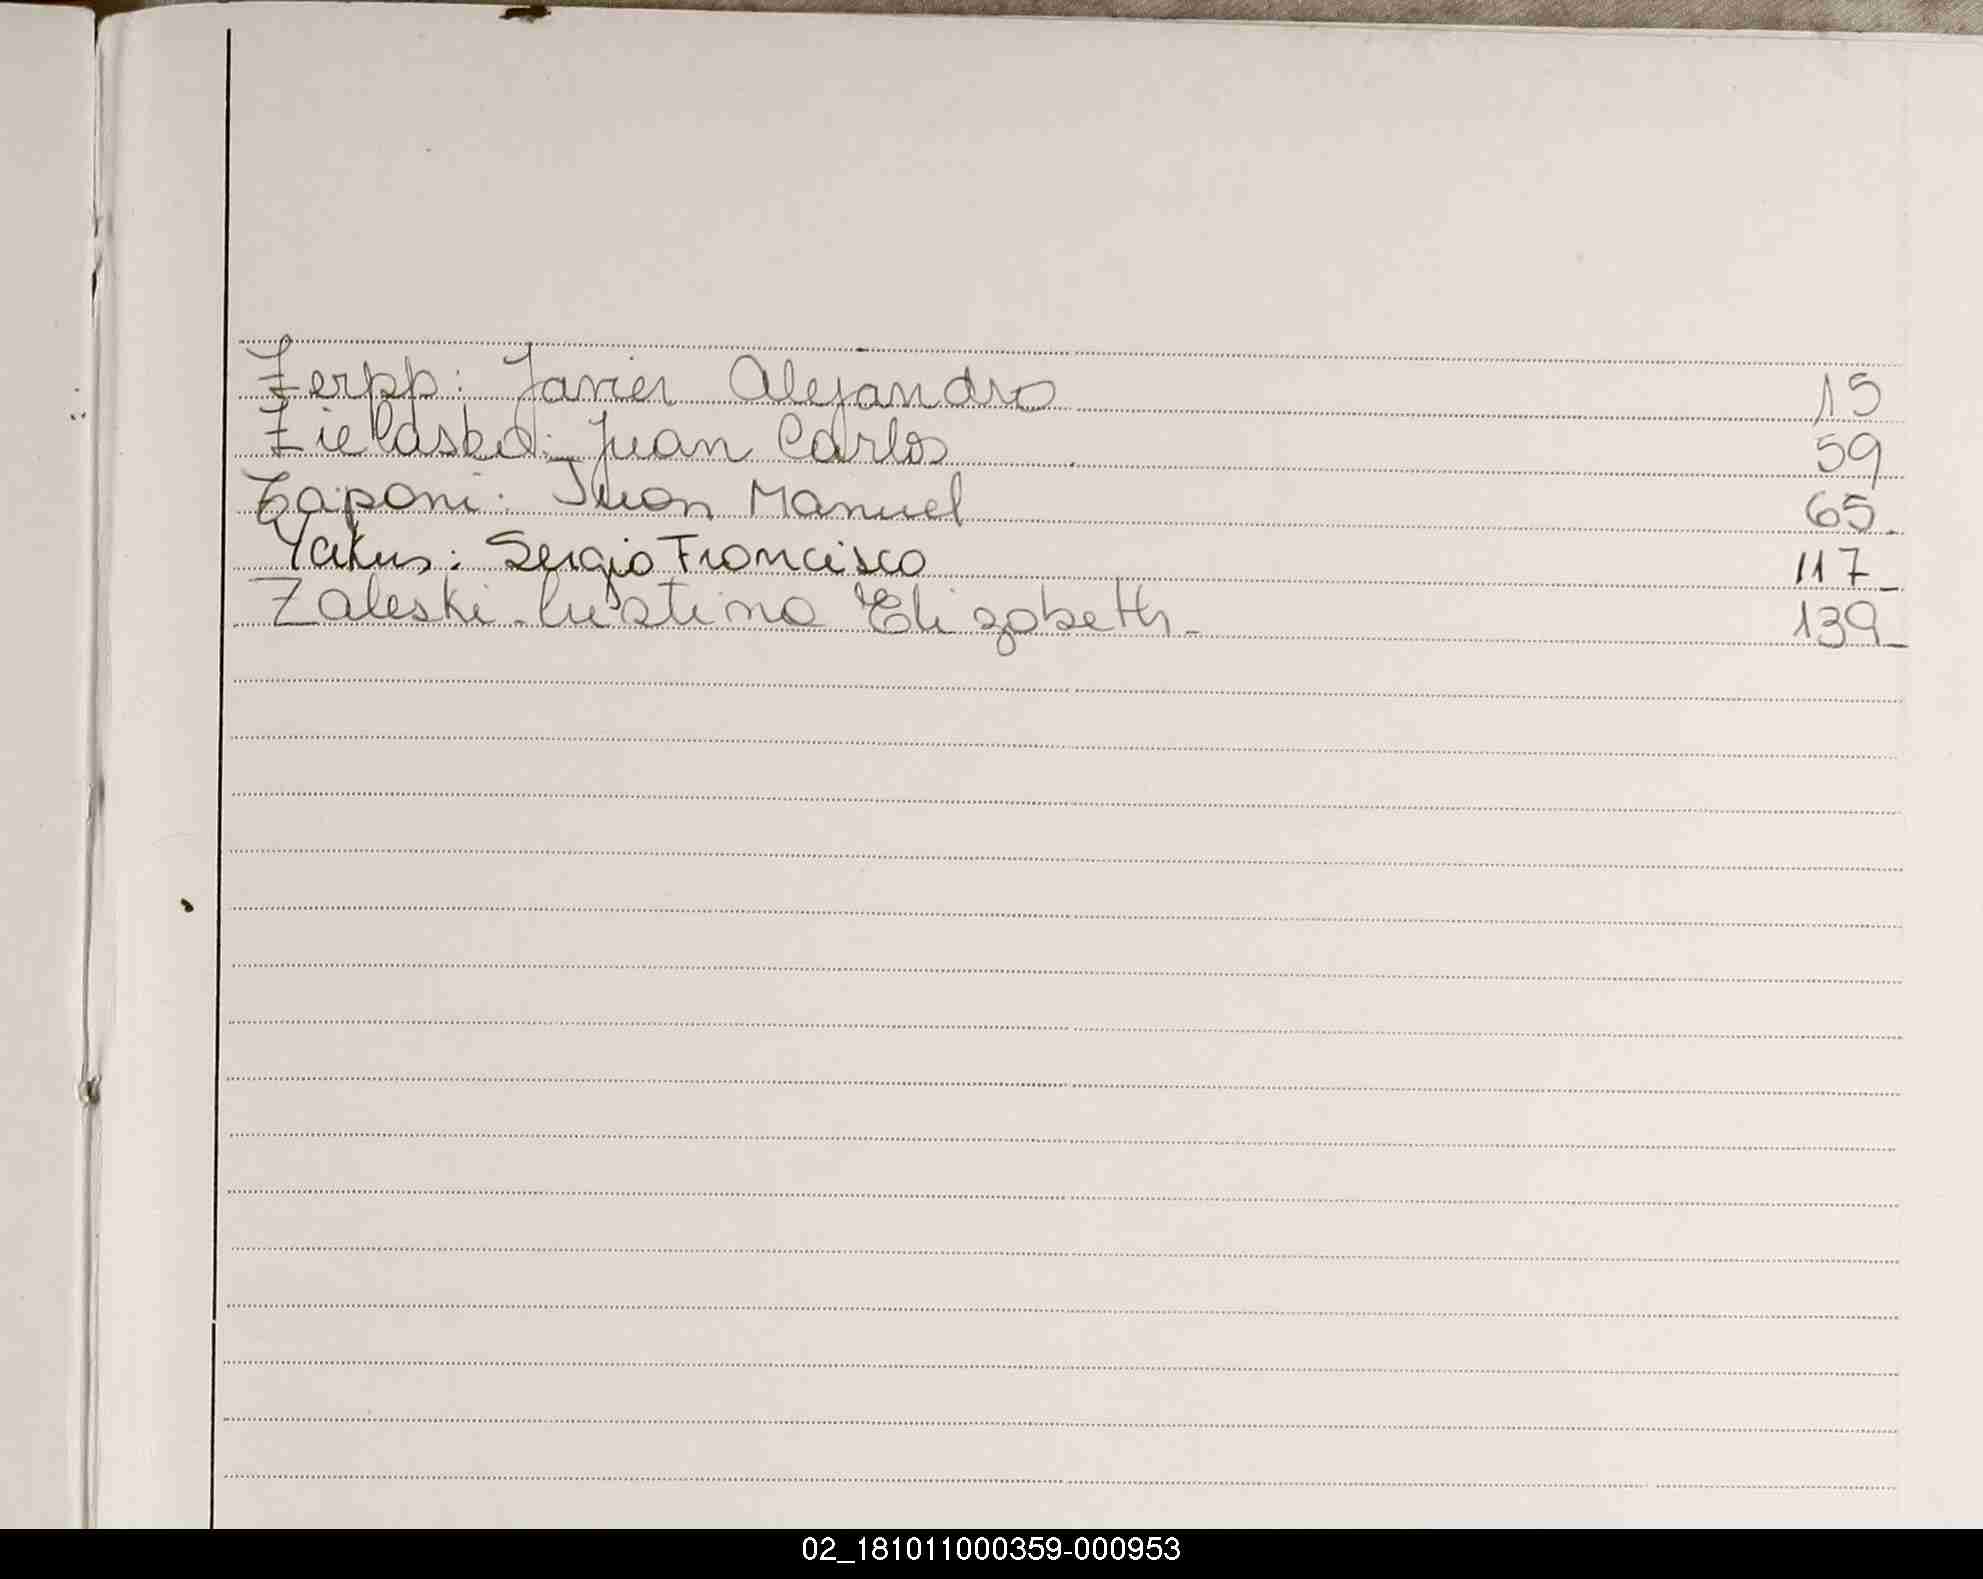 Zerpp: Javier Alejandro 15
Zielasko: Juan Carlos 59
Zaponi: Juan Manuel 65.
Yakus: Sergio Francisco 117_
Zaleski. Cristina Elizabeth_ 139_
02_181011000359-000953